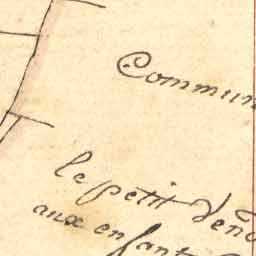 Commun
le petit
aux enfant